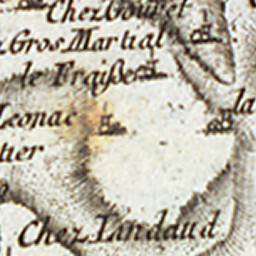 Chez Gouret
Gros Martial
le Fraiße
la
Leonac
tier
Chez Landaud